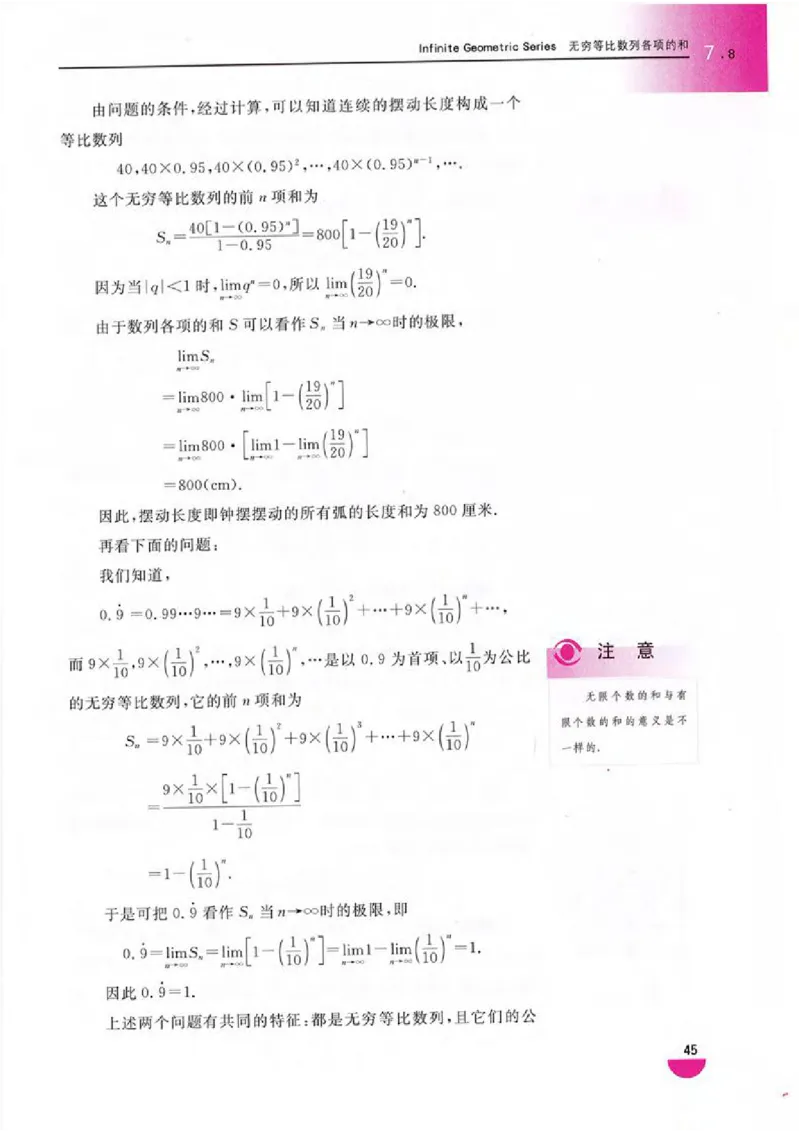 Infinite Geometric Series 无穷等比数列各项的和 7.8
由问题的条件,经过计算,可以知道连续的摆动长度构成一个
等比数列
40,40×0.95,40×(0.95)²,…,40×(0.95)ⁿ⁻¹,….
这个无穷等比数列的前 n 项和为
Sₙ=40[1-(0.95)ⁿ]/(1-0.95)=800[1-(19/20)ⁿ].
因为当|q|<1 时,lim(n→∞) qⁿ=0,所以 lim(n→∞) (19/20)ⁿ=0.
由于数列各项的和 S 可以看作 Sₙ 当 n→∞时的极限,
lim(n→∞) Sₙ
=lim(n→∞) 800·lim(n→∞) [1-(19/20)ⁿ]
=lim(n→∞) 800·[lim(n→∞) 1-lim(n→∞) (19/20)ⁿ]
=800(cm).
因此,摆动长度即钟摆摆动的所有弧的长度和为 800 厘米.
再看下面的问题:
我们知道,
0.9̇=0.99…9…=9×1/10+9×(1/10)²+…+9×(1/10)ⁿ+…,
而 9×1/10,9×(1/10)²,…,9×(1/10)ⁿ,…是以 0.9 为首项、以1/10为公比
的无穷等比数列,它的前 n 项和为
Sₙ=9×1/10+9×(1/10)²+9×(1/10)³+…+9×(1/10)ⁿ
=9×1/10×[1-(1/10)ⁿ]/(1-1/10)
=1-(1/10)ⁿ.
于是可把 0.9̇ 看作 Sₙ 当 n→∞时的极限,即
0.9̇=lim(n→∞) Sₙ=lim(n→∞) [1-(1/10)ⁿ]=lim(n→∞) 1-lim(n→∞) (1/10)ⁿ=1.
因此 0.9̇=1.
上述两个问题有共同的特征:都是无穷等比数列,且它们的公
注 意
无限个数的和与有
限个数的和的意义是不
一样的.
45